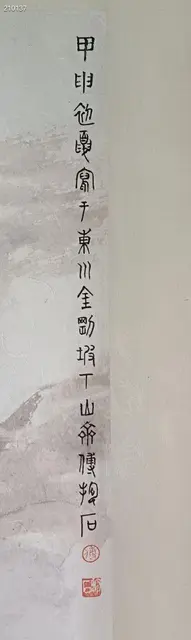 210137
甲申初夏寫于東川金剛坡下山齋傅抱石
傅